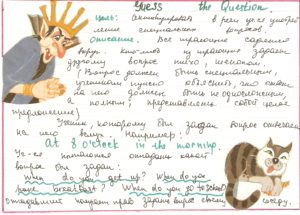 Guess the Question.
Цель: активизировать в речи уч-ся употреб
ление специальных вопросов.
Описание. Все играющие садятся
вкруг. кто-либо из играющих задает
другому вопрос тихо, шепотом.
Вопрос должен быть специальным,
ученикам нужно объяснить, что ответ
на него должен быть не односложным
а полным, представлять собой целое
предложение)
Ученик, которому был задан вопрос отвечает
на него вслух. Например:
At 8 o'clock in the morning.
Уч-ся пытаются отгадать какой
вопрос был задан:
When do you get up? When do you
have breakfast? When do you go to school?
отгадавший получает право задать вопрос своему соседу.